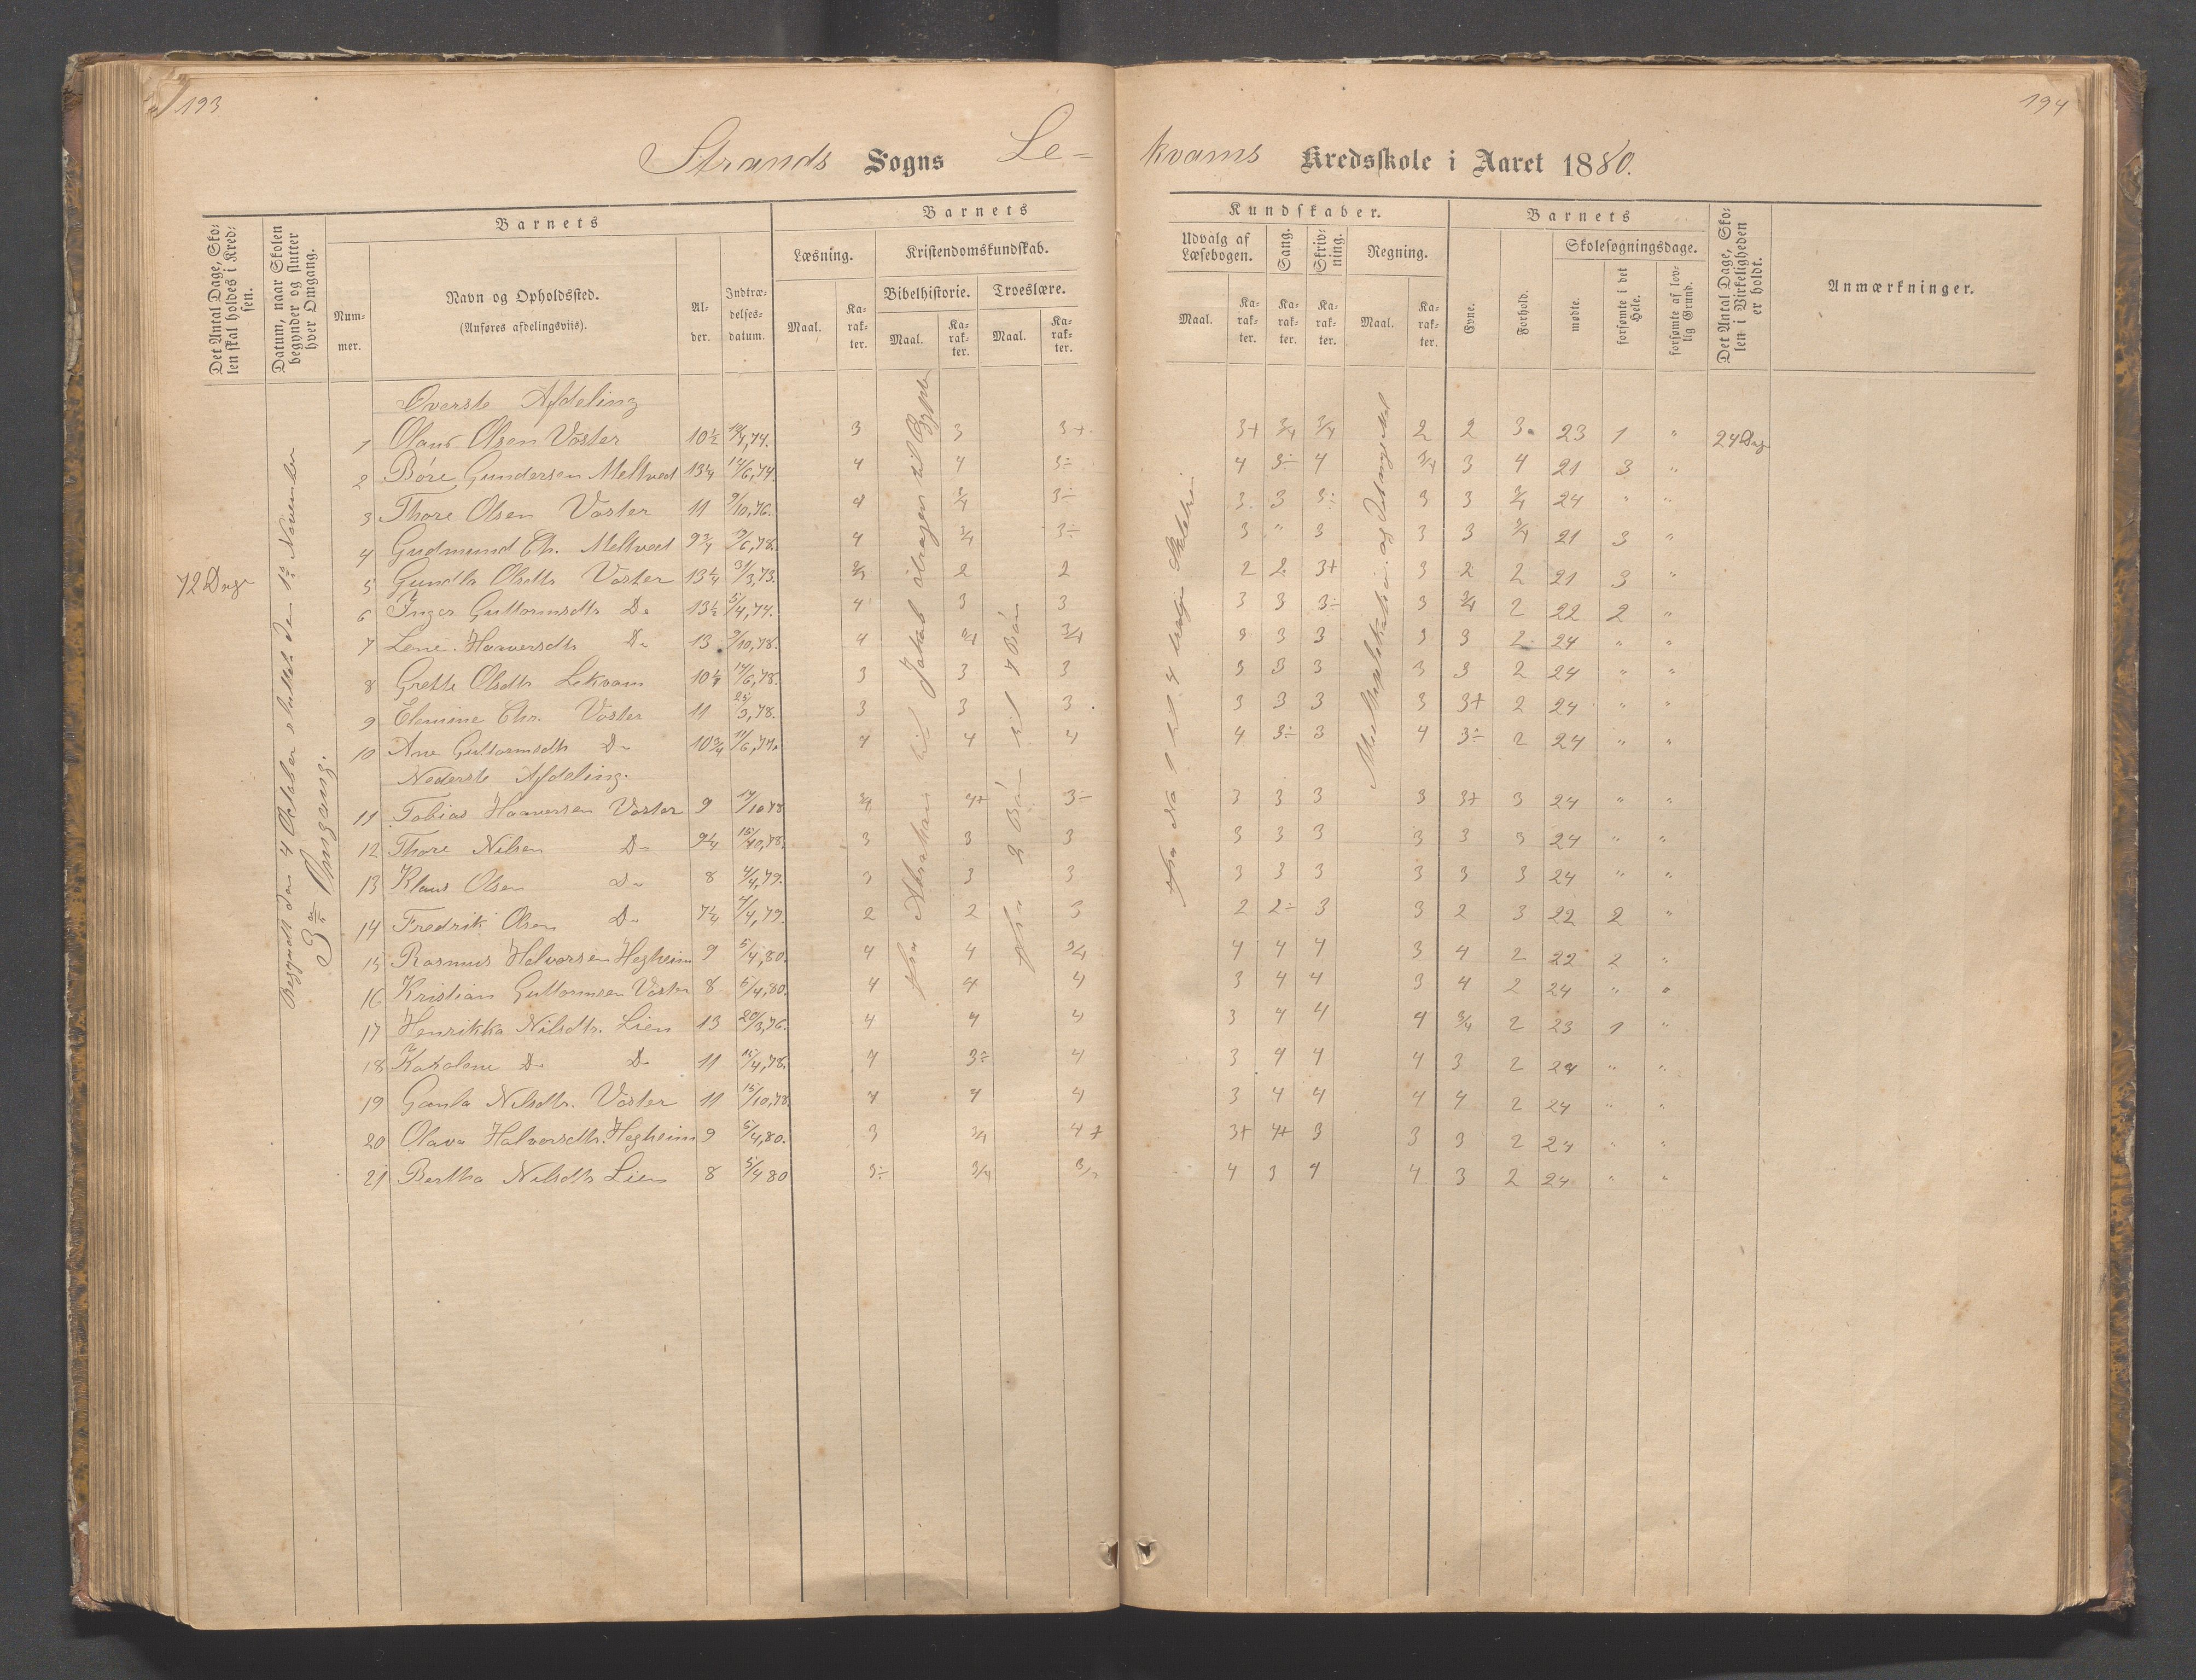 193
194
Strands Sogns Le=
kvams Kredsskole i Aaret 1880.
Det Antal Dage, Sko-
len skal holdes i Kred-
sen.
Datum, naar Skolen
begynder og slutter
hver Omgang.
Barnets
Num-
mer.
Navn og Opholdssted.
(Anføres afdelingsviis).
Al-
der.
Indtræ-
delses-
datum.
Barnets
Læsning.
Maal.
Ka-
rak-
ter.
Kristendomskundskab.
Bibelhistorie.
Maal.
Ka-
rak-
ter.
Troeslære.
Maal.
Ka-
rak-
ter.
Kundskaber.
Udvalg af
Læsebogen.
Maal.
Ka-
rak-
ter.
Sang.
Ka-
rak-
ter.
Skriv-
ning.
Ka-
rak-
ter.
Regning.
Maal.
Ka-
rak-
ter.
Barnets
Evne.
Forhold.
Skolesøgningsdage.
mødte.
forsømte i det
Hele.
forsømte af lov-
lig Grund.
Det Antal Dage, Sko-
len i Virkeligheden
er holdt.
Anmærkninger.
72 Dage
Begyndt den 4 Oktober sluttet den 1ste November
3die Omgang.
Jakob drager til Ægypten
Øverste Afdeling
1 Olaus Olsen Voster 10½ 74. 3 3 3+ 3+ 3/4 3/4 2 2 3 23 1 " 24 Dage
2 Børe Gundersen Meltvedt 13¼ 14/6,74. 4 4 3÷ 4 3÷ 4 3/4 3 4 21 3 "
3 Thore Olsen Voster 11 9/10,76. 4 3/4 3÷ 3 3 3÷ 3 3 3/4 24 " "
4 Gudmund Ch. Meltvedt 9¾ 78. 4 3/4 3÷ 3 " 3 3 3 3/4 21 3 "
5 Gundla Olsdtr Voster 13¼ 31/3,73. 2 2 2 2 3+ 3 2 2 21 3 "
6 Inger Guttormsdtr Do 13½ 5/4,74. 4 3 3 3 3 3÷ 3 3/4 2 22 2 "
7 Lene Haaversdtr Do 13 9/10,78. 4 3/4 3/4 3 3 3 3 3 2 24 " "
8 Grethe Olsdtr Lekvam 10¼ 14/6,78. 3 3 3 3 3 3 3 3 2 24 " "
9 Elamine Chr. Voster 11 25/3,78. 3 3 3 3 3 3 3 3+ 2 24 " "
10 Ane Guttormsdtr Do 10¾ 4 4 4 4 3÷ 3 4 3÷ 2 24 " "
Nederste Afdeling.
11 Tobias Haaversen Voster 9 14/10 78 3/4 4+ 3÷ 3 3 3 3 3+ 3 24 " "
12 Thore Nilsen Do 9¼ 15/10,78. 3 3 3 3 3 3 3 3 3 24 " "
13 Klaus Olsen Do 8 4/4,79. 3 3 3 3 3 3 3 3 3 24 " "
14 Fredrik Olsen Do 7¼ 4/4,79. 2 2 3 2 2÷ 3 3 2 3 22 2 "
15 Rasmus Halvorsen Hegheim 9 5/4,80. 4 4 3/4 4 4 4 3 4 2 22 2 "
16 Kristian Guttormsen Voster 8 5/4,80. 4 4 4 3 4 4 3 4 2 24 " "
17 Henrikka Nilsdtr. Lien 13 20/3,76. 4 4 4 3 4 4 4 3/4 2 23 1 "
18 Karolene Do Do 11 15/4,78. 4 3÷ 4 3 4 4 4 3 2 24 " "
19 Gamla Nilsdtr. Voster 11 15/10,78. 4 4 4 3 4 4 4 4 2 24 " "
20 Olava Halvorsdtr. Hegheim 9 5/4,80. 3 3/4 4+ 3+ 4+ 3 3 3 2 24 " "
21 Bertha Nilsdtr Lien 8 5/4 80 3÷ 3/4 4 3 4 4 3 2 24 " "